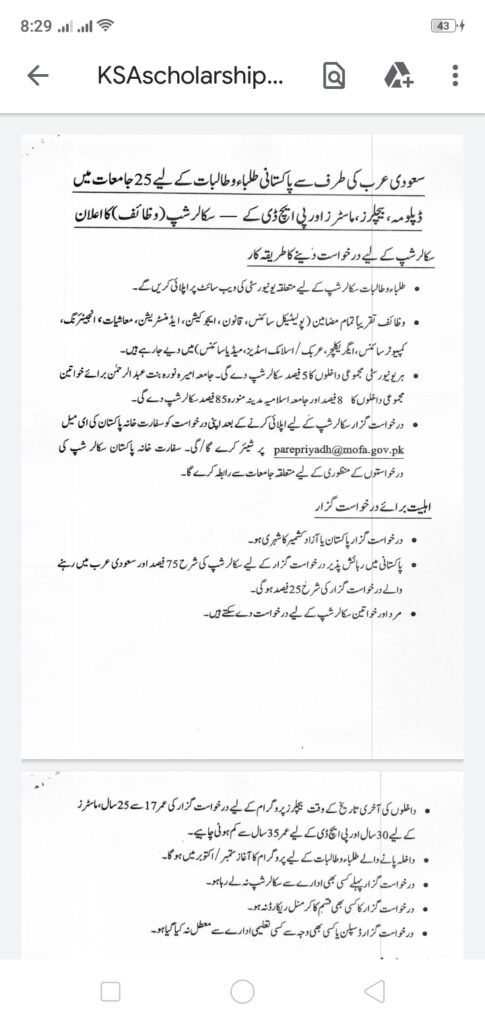 8:29
43
KSAscholarship...
سعودی عرب کی طرف سے پاکستانی طلباء و طالبات کے لیے 25 جامعات میں
ڈپلومہ، بیچلرز، ماسٹرز اور پی ایچ ڈی کے — سکالرشپ (وظائف) کا اعلان
سکالرشپ کے لیے درخواست دینے کا طریقہ کار
• طلباء و طالبات سکالرشپ کے لیے متعلقہ یونیورسٹی کی ویب سائٹ پر اپلائی کریں گے۔
• وظائف تقریباً تمام مضامین (پولیٹیکل سائنس، قانون، ایجوکیشن، ایڈمنسٹریشن، معاشیات، انجینئرنگ،
کمپیوٹر سائنس، ایگریکلچر، عربک/اسلامک اسٹڈیز، میڈیا سائنس) میں دیے جا رہے ہیں۔
• ہر یونیورسٹی مجموعی داخلوں کا 5 فیصد سکالرشپ دے گی۔ جامعہ امیرہ نورہ بنت عبدالرحمٰن برائے خواتین
مجموعی داخلوں کا 8 فیصد اور جامعہ اسلامیہ مدینہ منورہ 85 فیصد سکالرشپ دے گی۔
• درخواست گزار سکالرشپ کے لیے اپلائی کرنے کے بعد اپنی درخواست کو سفارت خانہ پاکستان کی ای میل
parepriyadh@mofa.gov.pk پر شیئر کرے گا/گی۔ سفارت خانہ پاکستان سکالر شپ کی
درخواستوں کے منظوری کے لیے متعلقہ جامعات سے رابطہ کرے گا۔
اہلیت برائے درخواست گزار
• درخواست گزار پاکستان یا آزاد کشمیر کا شہری ہو۔
• پاکستانی میں رہائش پذیر درخواست گزار کے لیے سکالرشپ کی شرح 75 فیصد اور سعودی عرب میں رہنے
والے درخواست گزار کی شرح 25 فیصد ہو گی۔
• مرد اور خواتین سکالرشپ کے لیے درخواست دے سکتے ہیں۔
• داخلوں کی آخری تاریخ کے وقت بیچلرز پروگرام کے لیے درخواست گزار کی عمر 17 سے 25 سال، ماسٹرز
کے لیے 30 سال اور پی ایچ ڈی کے لیے عمر 35 سال سے کم ہونی چاہیے۔
• داخلہ پانے والے طلباء و طالبات کے لیے پروگرام کا آغاز ستمبر/اکتوبر میں ہو گا۔
• درخواست گزار پہلے کسی بھی ادارے سے سکالرشپ نہ لے رہا ہو۔
• درخواست گزار کا کسی بھی قسم کا کرمنل ریکارڈ نہ ہو۔
• درخواست گزار ڈسپلن یا کسی بھی وجہ سے کسی تعلیمی ادارے سے معطل نہ کیا گیا ہو۔